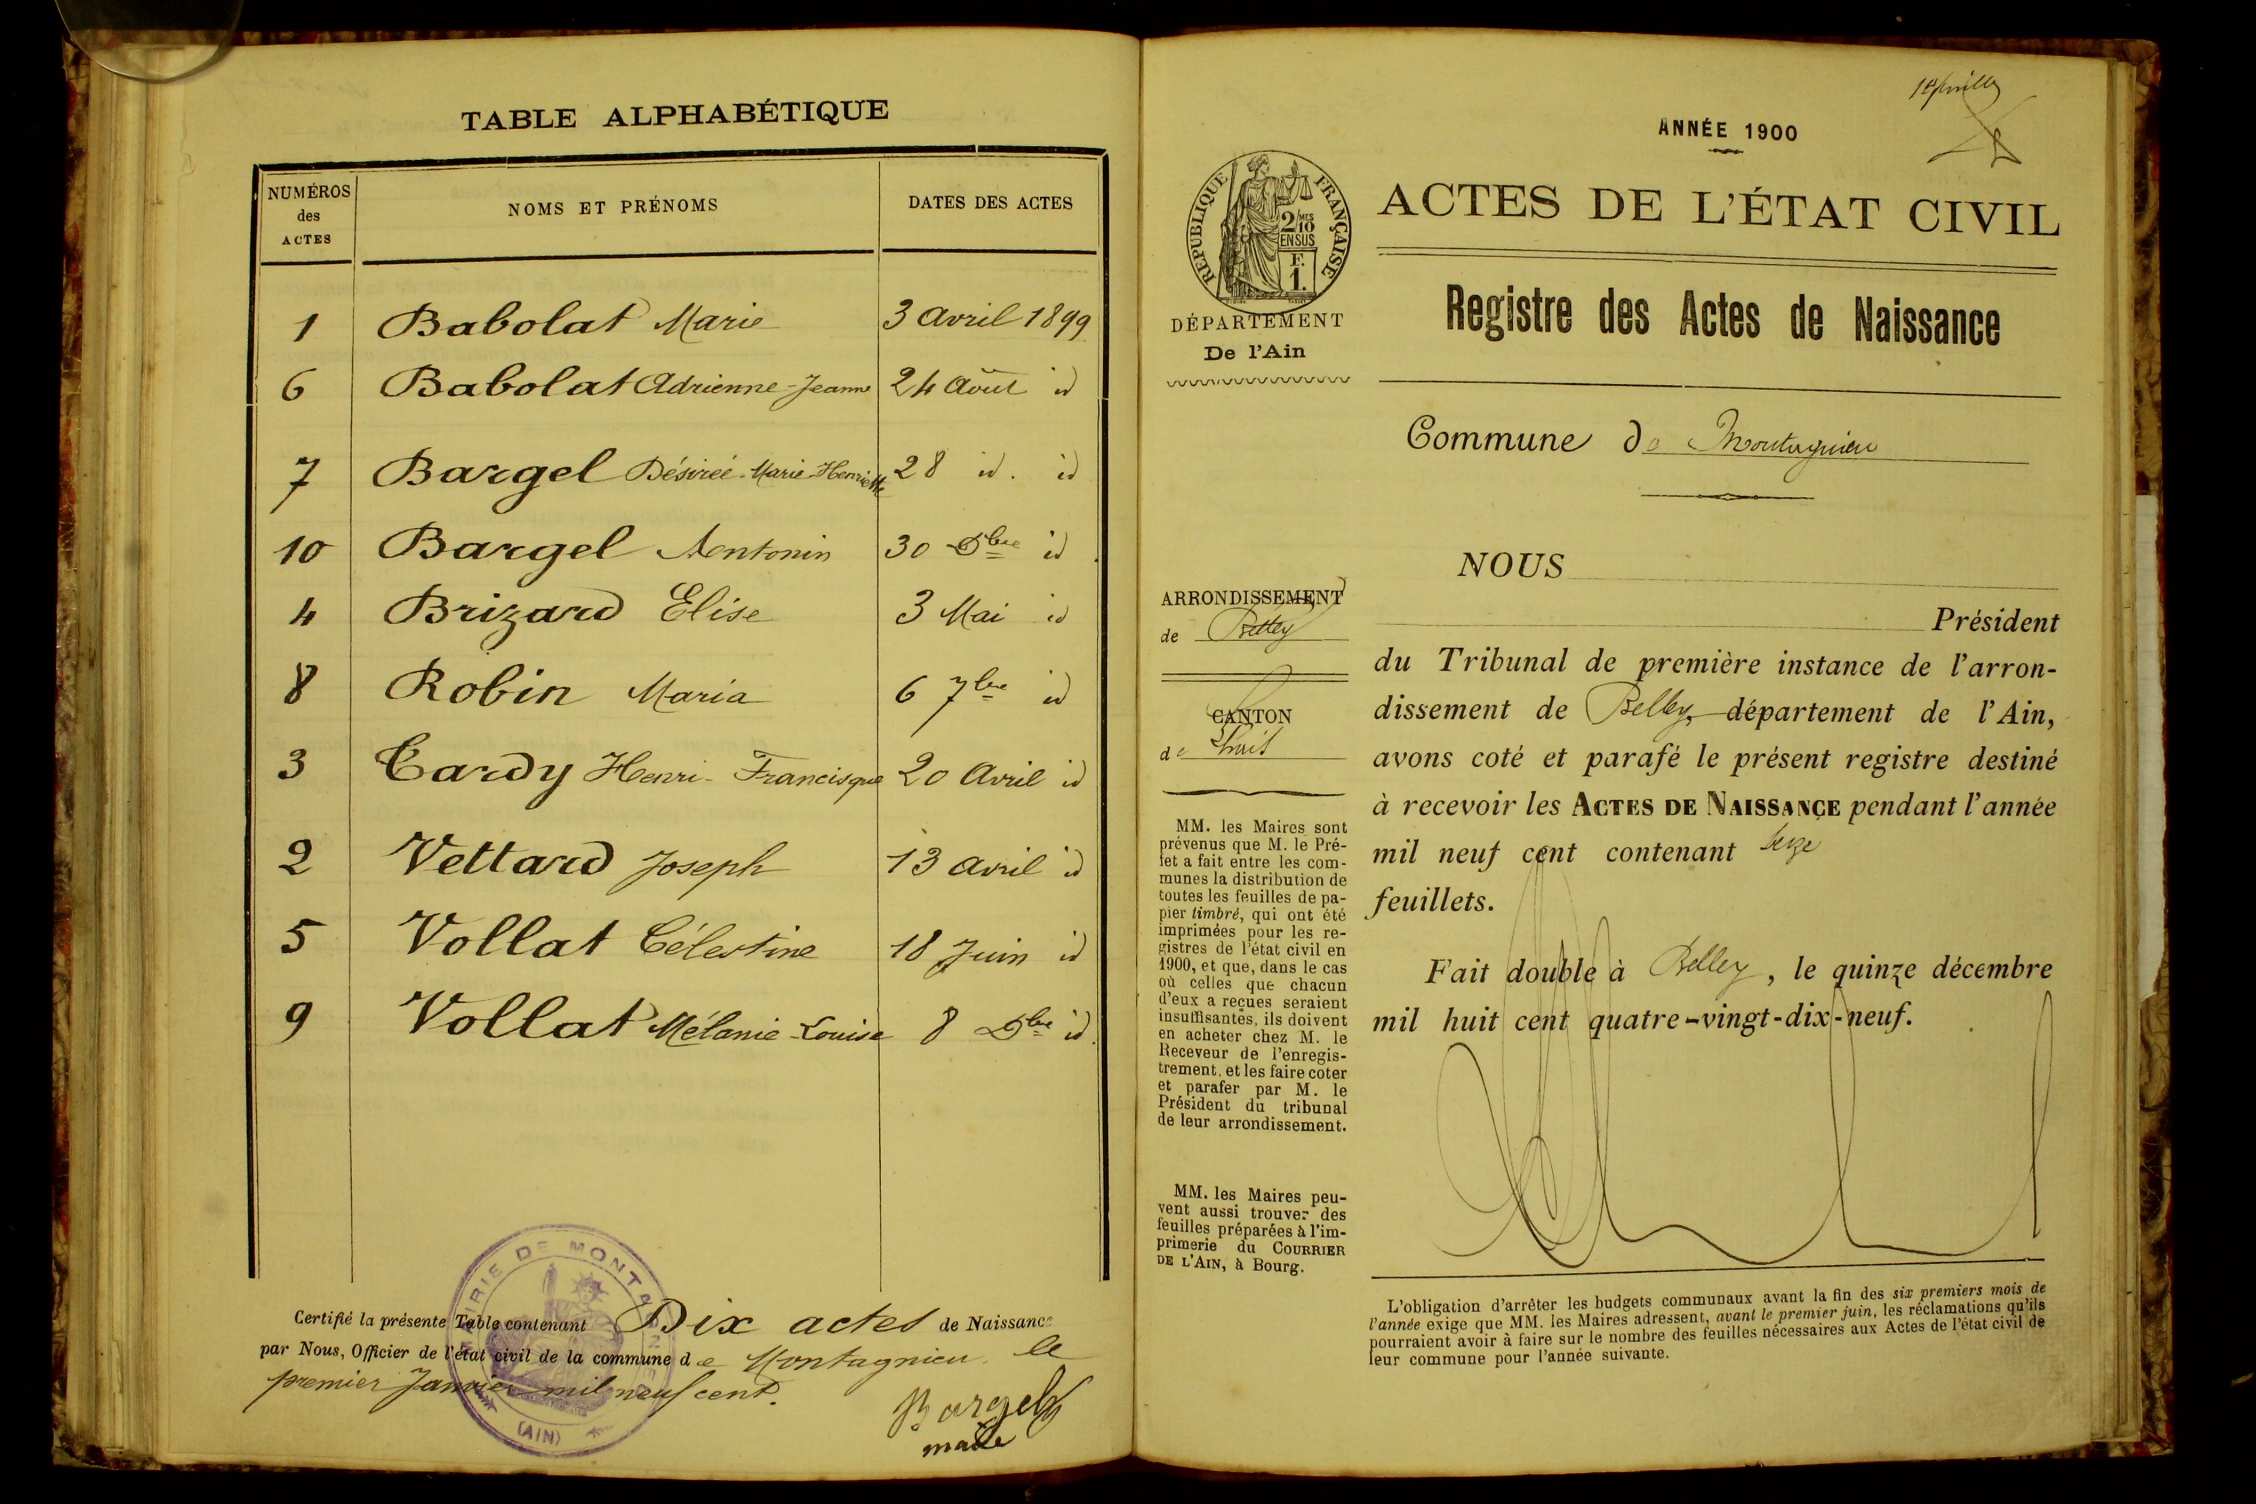 TABLE ALPHABÉTIQUE
NUMÉROS
des
ACTES
NOMS ET PRÉNOMS
DATES DES ACTES
1 Babolat Marie 3 avril 1899
6 Babolat Adrienne-Jeanne 24 Août id
7 Bargel Désireé-Marie-Henriette 28 id. id
10 Bargel Antonin 30 Dbre id.
4 Brizard Elise 3 Mai id
8 Robin Maria 6 7bre id
3 Tardy Henri-Francisque 20 Avril id
2 Vettard Joseph 13 avril id
5 Vollat Célestine 18 Juin id
9 Vollat Mélanie-Louise 8 Dbre id.
MAIRIE DE MONTAGNIEU
(AIN)
Certifié la présente Table contenant Dix actes de Naissance
par Nous, Officier de l'état civil de la commune de Montagnieu. le
premier Janvier mil neuf cent.
Bargel
maire
ANNÉE 1900
RÉPUBLIQUE FRANÇAISE
2/10 MES
EN SUS
F.
1.
DÉPARTEMENT
De l'Ain
ACTES DE L'ÉTAT CIVIL
Registre des Actes de Naissance
Commune de Montagnieu
ARRONDISSEMENT
de Belley
CANTON
de Lhuis
MM. les Maires sont
prévenus que M. le Pré-
fet a fait entre les com-
munes la distribution de
toutes les feuilles de pa-
pier timbré, qui ont été
imprimées pour les re-
gistres de l'état civil en
1900, et que, dans le cas
où celles que chacun
d'eux a reçues seraient
insuffisantes, ils doivent
en acheter chez M. le
Receveur de l'enregis-
trement, et les faire coter
et parafer par M. le
Président du tribunal
de leur arrondissement.
MM. les Maires peu-
vent aussi trouver des
feuilles préparées à l'im-
primerie du COURRIER
DE L'AIN, à Bourg.
NOUS
Président
du Tribunal de première instance de l'arron-
dissement de Belley, département de l'Ain,
avons coté et parafé le présent registre destiné
à recevoir les ACTES DE NAISSANCE pendant l'année
mil neuf cent contenant seize
feuillets.
Fait double à Belley, le quinze décembre
mil huit cent quatre-vingt-dix-neuf.
L'obligation d'arrêter les budgets communaux avant la fin des six premiers mois de
l'année exige que MM. les Maires adressent, avant le premier juin, les réclamations qu'ils
pourraient avoir à faire sur le nombre des feuilles nécessaires aux Actes de l'état civil de
leur commune pour l'année suivante.